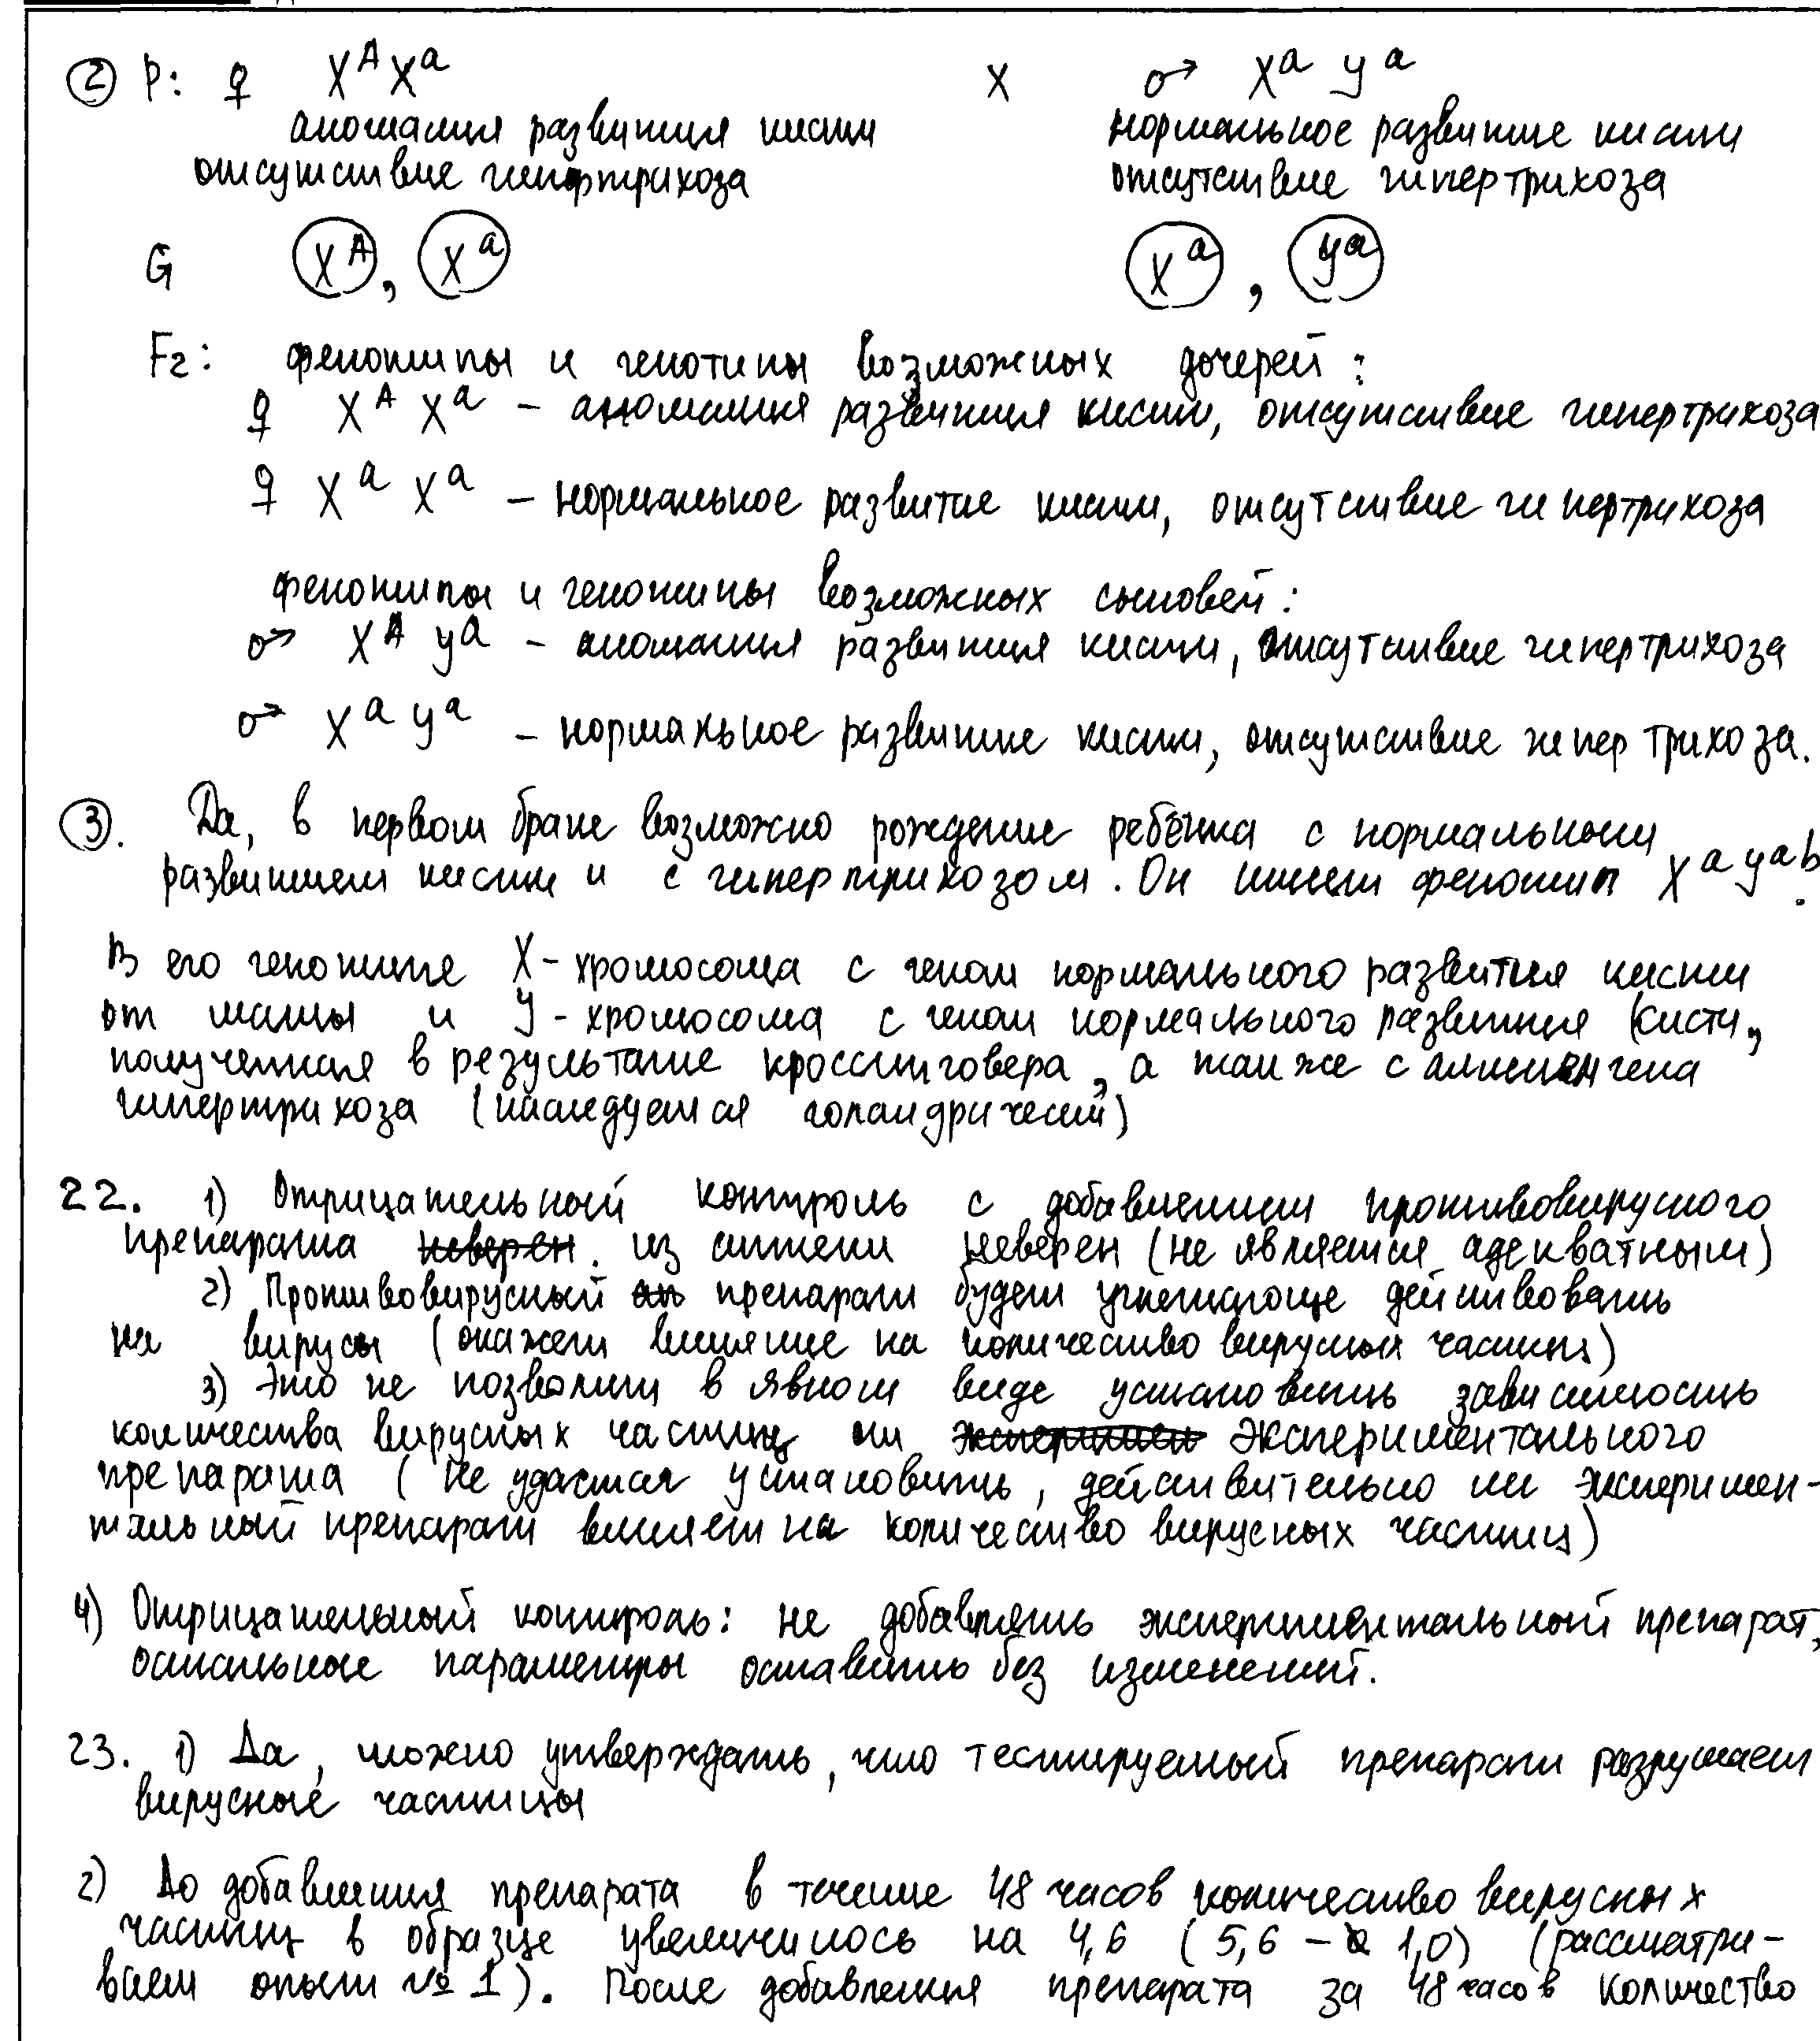 ② P: ♀ Xᴬ Xᵃ X ♂ Xᵃ Yᵃ
аномалия развития кисти нормальное развитие кисти
отсутствие гипертрихоза отсутствие гипертрихоза
G Xᴬ, Xᵃ Xᵃ, Yᵃ
F₂: фенотипы и генотипы возможных дочерей:
♀ Xᴬ Xᵃ – аномалия развития кисти, отсутствие гипертрихоза
♀ Xᵃ Xᵃ – нормальное развитие кисти, отсутствие гипертрихоза
фенотипы и генотипы возможных сыновей:
♂ Xᴬ Yᵃ – аномалия развития кисти, отсутствие гипертрихоза
♂ Xᵃ Yᵃ – нормальное развитие кисти, отсутствие гипертрихоза.
③. Да, в первом браке возможно рождение ребёнка с нормальным
развитием кисти и с гипертрихозом. Он имеет фенотип Xᵃ Yᵃᵇ.
В его генотипе X-хромосома с геном нормального развития кисти
от мамы и Y-хромосома с геном нормального развития кисти,
полученная в результате кроссинговера, а также с аллелем гена
гипертрихоза (наследуется голандрически)
22. 1) Отрицательный контроль с добавлением противовирусного
препарата неверен. из аптеки неверен (не является адекватным)
2) Противовирусный препарат будет угнетающе действовать
на вирусы (окажет влияние на количество вирусных частиц)
3) Это не позволит в явном виде установить зависимость
количества вирусных частиц от эксперимен экспериментального
препарата (не удастся установить, действительно ли эксперимен-
тальный препарат влияет на количество вирусных частиц)
4) Отрицательный контроль: не добавлять экспериментальный препарат,
остальные параметры оставить без изменений.
23. 1) Да, можно утверждать, что тестируемый препарат разрушает
вирусные частицы
2) До добавления препарата в течение 48 часов количество вирусных
частиц в образце увеличилось на 4,6 (5,6 – 1,0) (рассматри-
ваем опыт № 1). После добавления препарата за 48 часов количество